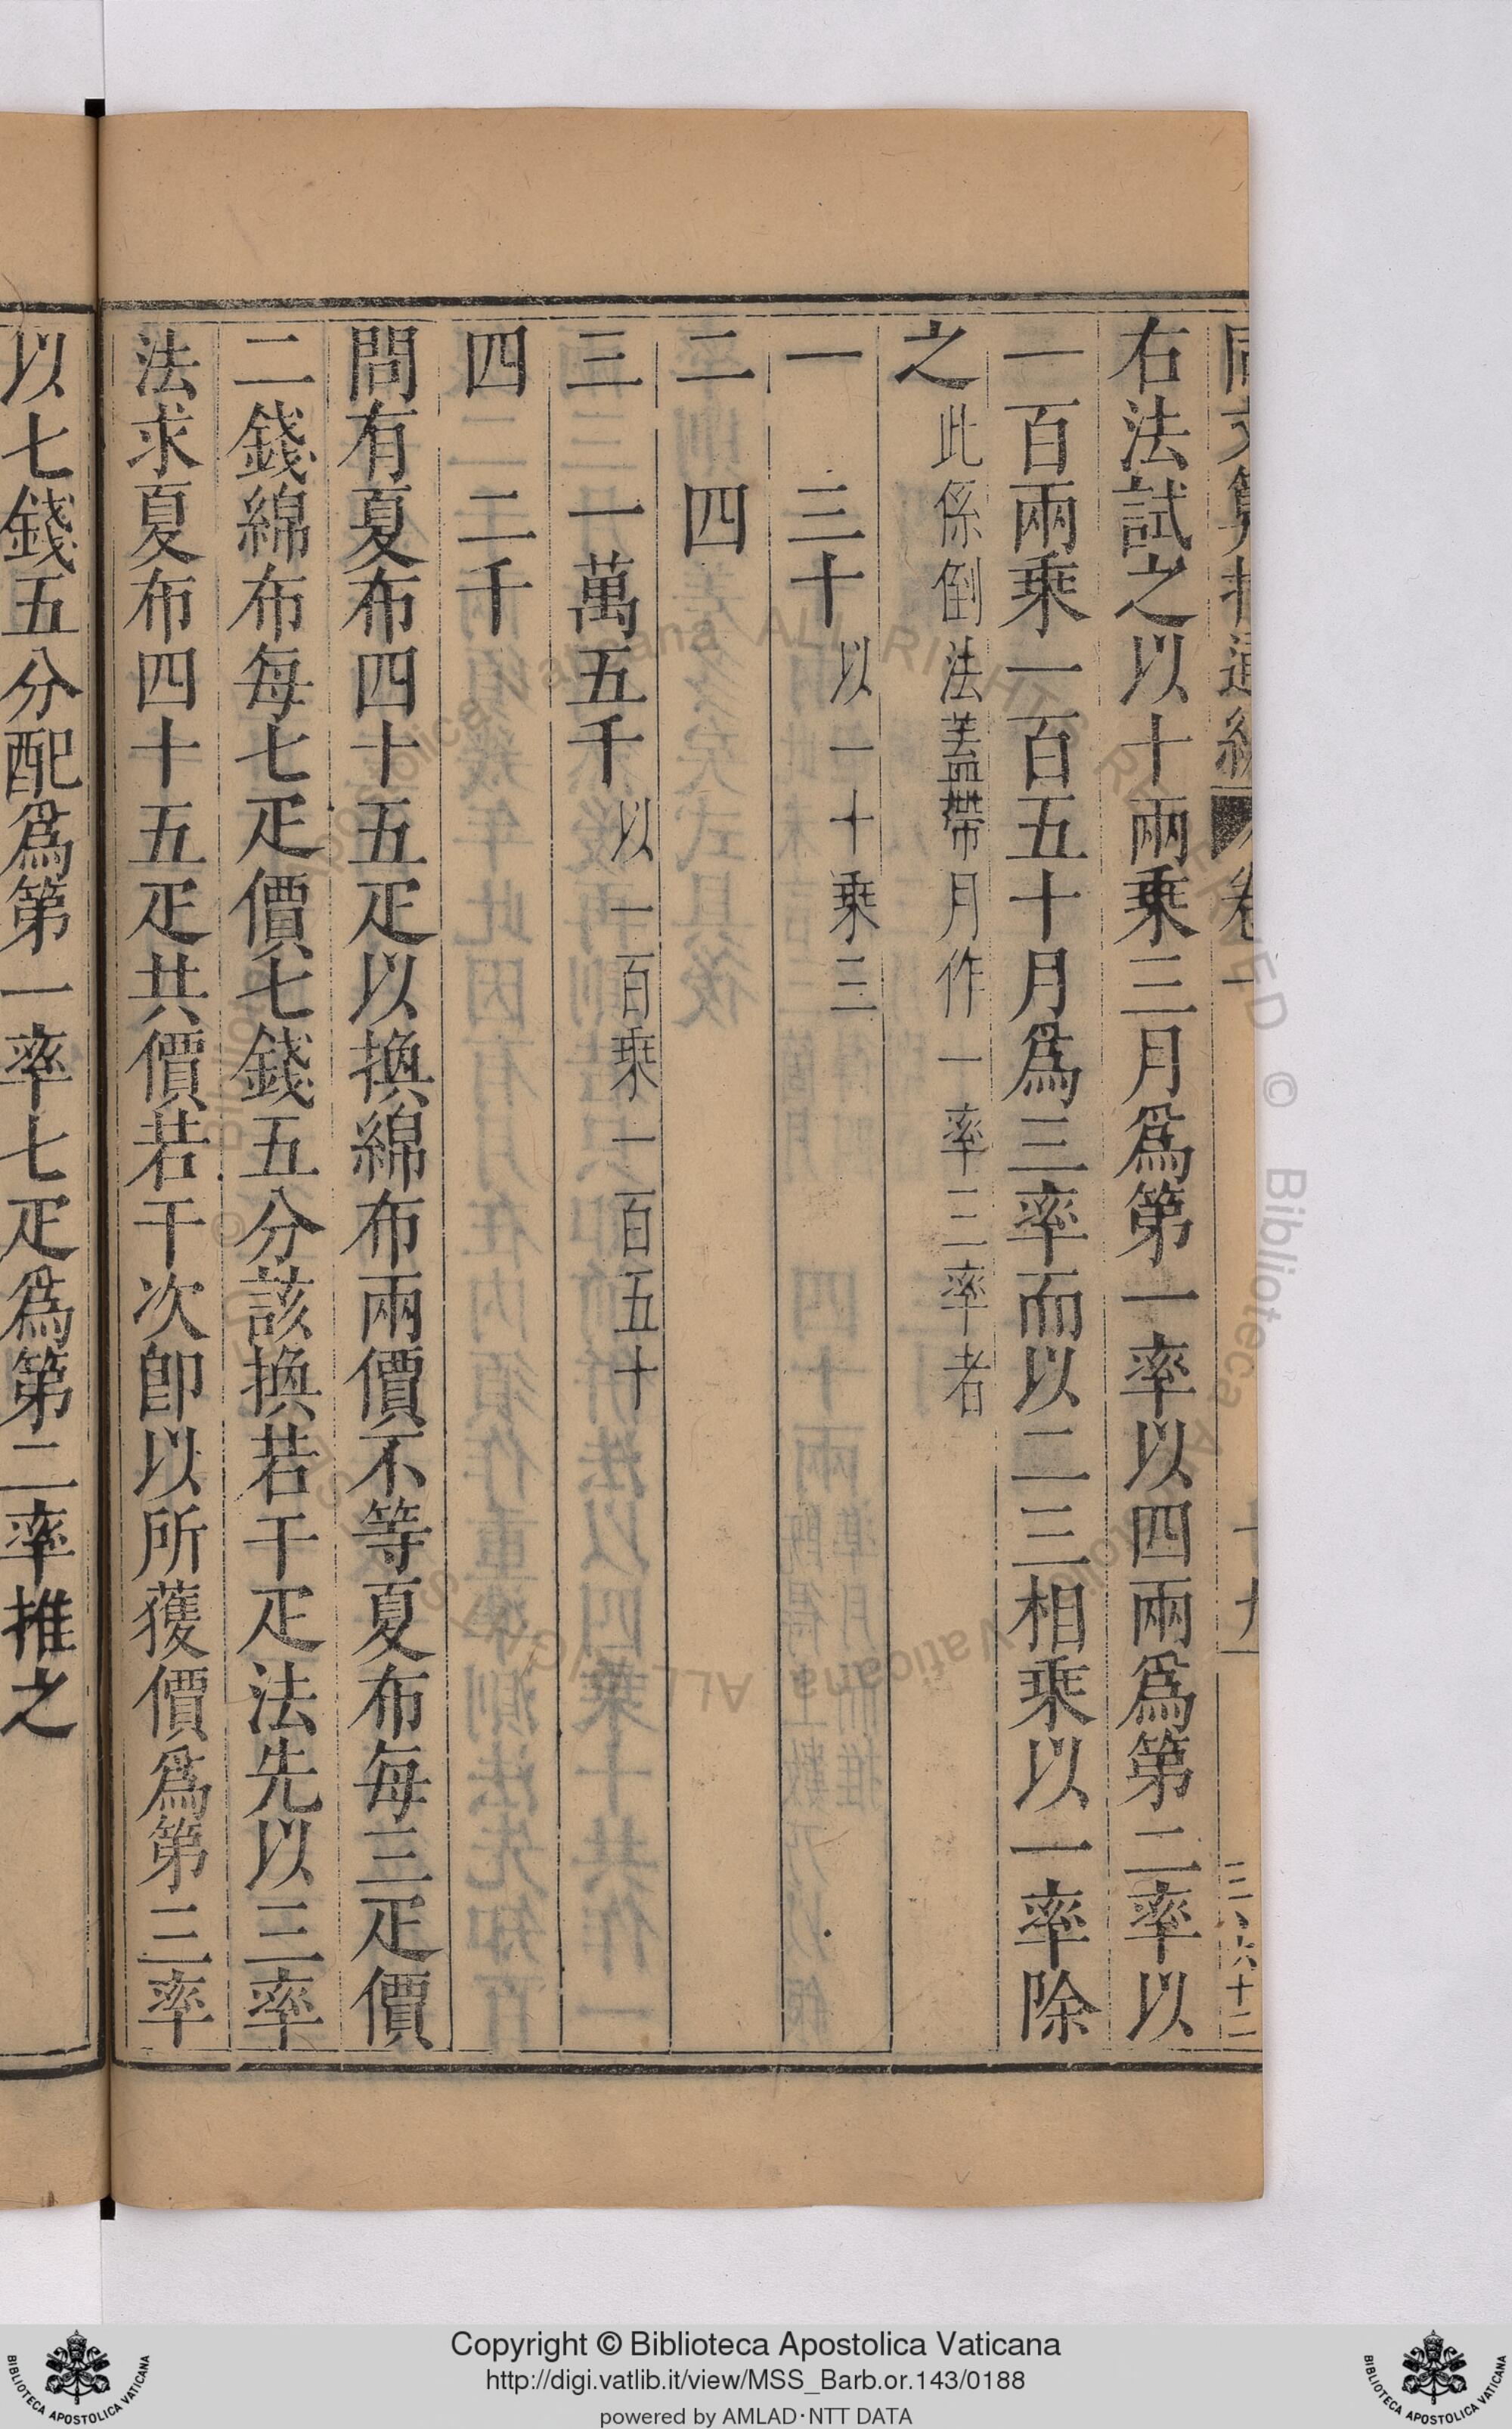 右法試之以十兩乘三月爲第一率以四兩爲第二率以
一百兩乘一百五十月爲三率而以二三相乘以一率除
之此係倒法蓋帶月作一率三率者
一 三十以一十乘三
二 四
三 一萬五千以一百乘一百五十
四 二千
問有夏布四十五疋以換綿布兩價不等夏布每三疋價
二錢綿布每七疋價七錢五分該換若干疋法先以三率
法求夏布四十五疋共價若干次卽以所獲價爲第三率
以七錢五分配爲第一率七疋爲第二率推之
Copyright © Biblioteca Apostolica Vaticana
http://digi.vatlib.it/view/MSS_Barb.or.143/0188
powered by AMLAD·NTT DATA
BIBLIOTECA APOSTOLICA VATICANA
BIBLIOTECA APOSTOLICA VATICANA